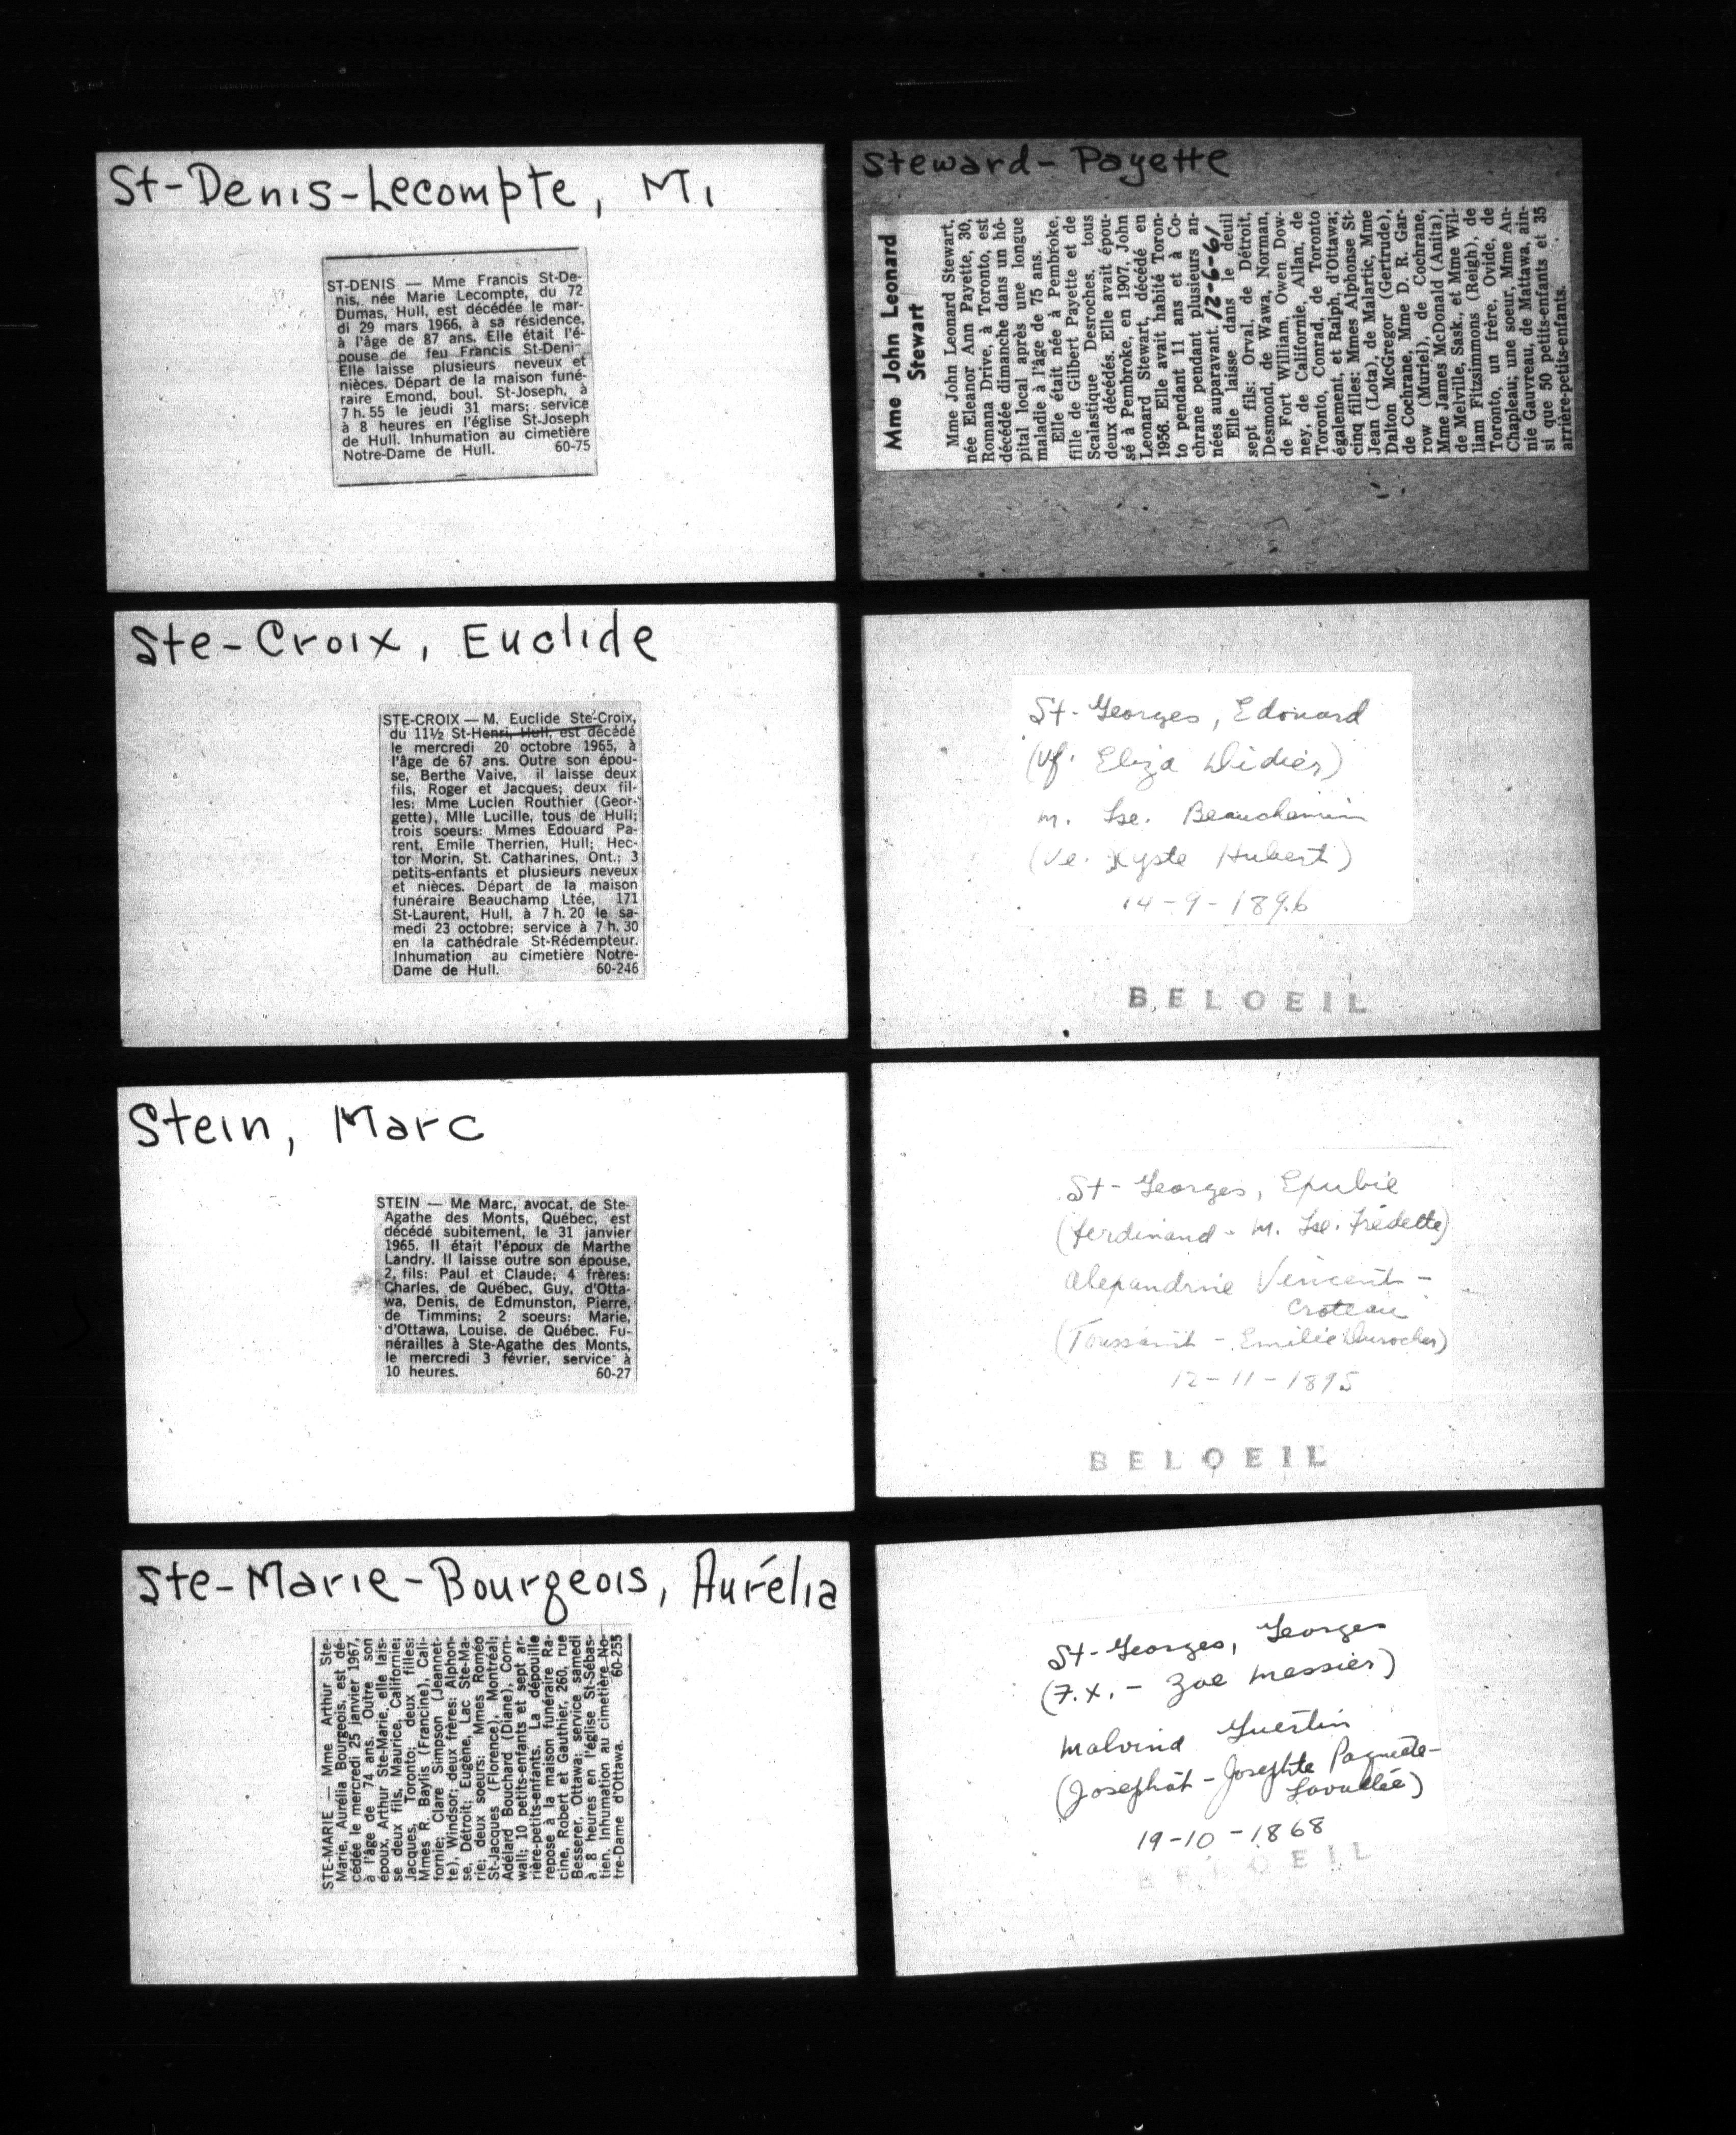 St-Denis-Lecompte, M.
ST-DENIS — Mme Francis St-De-
nis, née Marie Lecompte, du 72
Dumas, Hull, est décédée le mar-
di 29 mars 1966, à sa résidence,
à l'âge de 87 ans. Elle était l'é-
pouse de feu Francis St-Deni-
Elle laisse plusieurs neveux et
nièces. Départ de la maison funé-
raire Emond, boul. St-Joseph, à
7 h. 55 le jeudi 31 mars; service
à 8 heures en l'église St-Joseph
de Hull. Inhumation au cimetière
Notre-Dame de Hull. 60-75
Ste-Croix, Euclide
STE-CROIX — M. Euclide Ste-Croix,
du 11½ St-Henri, Hull, est décédé
le mercredi 20 octobre 1965, à
l'âge de 67 ans. Outre son épou-
se, Berthe Vaive, il laisse deux
fils, Roger et Jacques; deux fil-
les: Mme Lucien Routhier (Geor-
gette), Mlle Lucille, tous de Hull;
trois soeurs: Mmes Edouard Pa-
rent, Emile Therrien, Hull; Hec-
tor Morin, St. Catharines, Ont.; 3
petits-enfants et plusieurs neveux
et nièces. Départ de la maison
funéraire Beauchamp Ltée, 171
St-Laurent, Hull, à 7 h. 20 le sa-
medi 23 octobre; service à 7 h. 30
en la cathédrale St-Rédempteur.
Inhumation au cimetière Notre-
Dame de Hull. 60-246
Stein, Marc
STEIN — Me Marc, avocat, de Ste-
Agathe des Monts, Québec, est
décédé subitement, le 31 janvier
1965. Il était l'époux de Marthe
Landry. Il laisse outre son épouse,
2 fils: Paul et Claude; 4 frères:
Charles, de Québec, Guy, d'Otta-
wa, Denis, de Edmunston, Pierre,
de Timmins; 2 soeurs: Marie,
d'Ottawa, Louise, de Québec. Fu-
nérailles à Ste-Agathe des Monts,
le mercredi 3 février, service à
10 heures. 60-27
Ste-Marie-Bourgeois, Aurélia
STE-MARIE — Mme Arthur Ste-
Marie, Aurélia Bourgeois, est dé-
cédée le mercredi 25 janvier 1967,
à l'âge de 74 ans. Outre son
époux, Arthur Ste-Marie, elle lais-
se deux fils, Maurice, Californie;
Jacques, Toronto; deux filles:
Mmes R. Baylis (Francine), Cali-
fornie; Clare Simpson (Jeannet-
te), Windsor; deux frères: Alphon-
se, Détroit; Eugène, Lac Ste-Ma-
rie; deux soeurs: Mmes Roméo
St-Jacques (Florence), Montréal;
Adélard Bouchard (Diane), Corn-
wall; 10 petits-enfants et sept ar-
rière-petits-enfants. La dépouille
repose à la maison funéraire Ra-
cine, Robert et Gauthier, 260, rue
Besserer, Ottawa; service samedi
à 8 heures en l'église St-Sébas-
tien. Inhumation au cimetière No-
tre-Dame d'Ottawa. 60-255
Steward-Payette
Mme John Leonard
Stewart
Mme John Leonard Stewart,
née Eleanor Ann Payette, 30,
Romana Drive, à Toronto, est
décédée dimanche dans un hô-
pital local après une longue
maladie à l'âge de 75 ans.
Elle était née à Pembroke,
fille de Gilbert Payette et de
Scalastique Desroches, tous
deux décédés. Elle avait épou-
sé à Pembroke, en 1907, John
Leonard Stewart, décédé en
1956. Elle avait habité Toron-
to pendant 11 ans et à Co-
chrane pendant plusieurs an-
nées auparavant. 12-6-61
Elle laisse dans le deuil
sept fils: Orval, de Détroit,
Desmond, de Wawa, Norman,
de Fort William, Owen Dow-
ney, de Californie, Allan, de
Toronto, Conrad, de Toronto
également, et Ralph, d'Ottawa;
cinq filles: Mmes Alphonse St-
Jean (Lota), de Malartic, Mme
Dalton McGregor (Gertrude),
de Cochrane, Mme D. R. Gar-
row (Muriel), de Cochrane,
Mme James McDonald (Anita),
de Melville, Sask., et Mme Wil-
liam Fitzsimmons (Reigh), de
Toronto, un frère, Ovide, de
Chapleau; une soeur, Mme An-
nie Gauvreau, de Mattawa, ain-
si que 50 petits-enfants et 35
arrière-petits-enfants.
St-Georges, Edouard
(Vf. Eliza Didier)
m. Lse. Beauchemin
(Ve. Xyste Hubert)
14-9-1896
BELOEIL
St-Georges, Epubie
(Ferdinand - M. Lse. Frédette)
Alexandrine Vincent -
Croteau
(Toussaint - Emilie Durocher)
12-11-1895
BELOEIL
St-Georges, Georges
(F.X. - Zoe Messier)
Malvina Guertin
(Josephat - Josephte Paquette-
Lavallée)
19-10-1868
BELOEIL